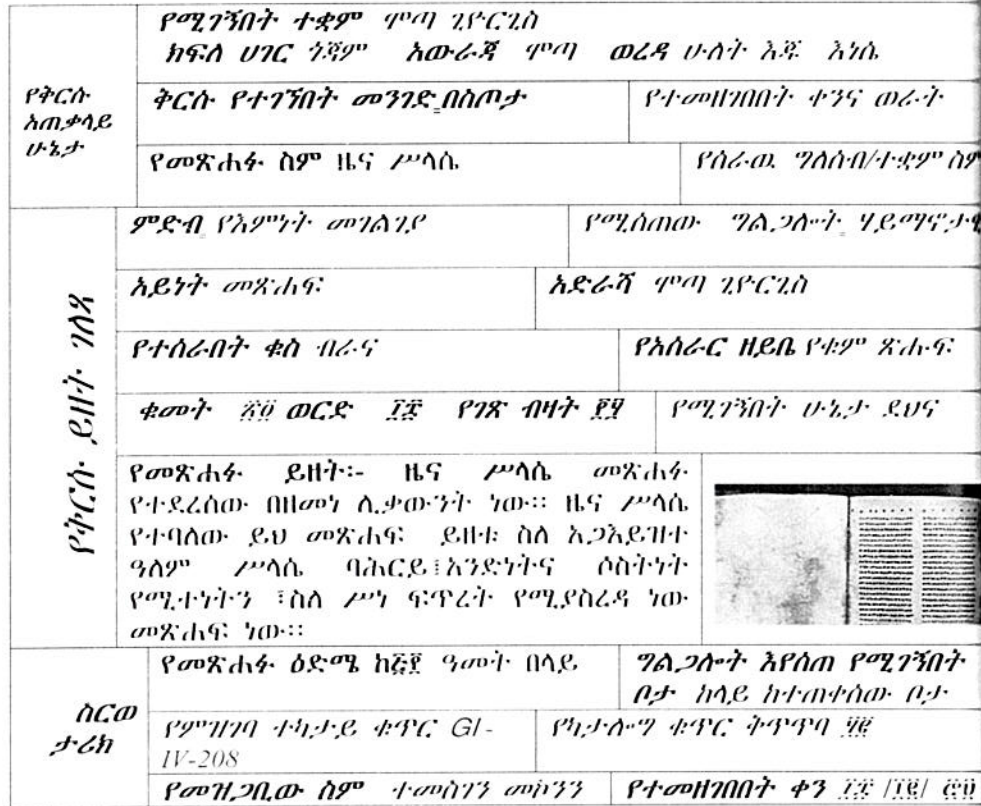 የሚገኝበት ተቋም ሞጣ ጊዮርጊስ
ክፍለ ሀገር ጎጃም አውራጃ ሞጣ ወረዳ ሁለት እጁ እነሴ
የቅርሱ
አጠቃላይ
ሁኔታ
ቅርሱ የተገኝበት መንገድ በስጦታ
የተመዘገበበት ቀንና ወራት
የመጽሐፉ ስም ዜና ሥላሴ
የሰራዉ ግለሰብ/ተቋም ስም
የቅርሱ ይዘት ገለጻ
ምድብ የእምነት መገልገያ
የሚሰጠው ግልጋሎት
አይነት መጽሐፍ
አድራሻ ሞጣ ጊዮርጊስ
የተሰራበት ቁስ ብራና
የአሰራር ዘይቤ የቁም ጽሑፍ
ቁመት ወርድ የገጽ ብዛት
የሚገኝበት ሁኔታ ደህና
የመጽሐፉ ይዘት፡- ዜና ሥላሴ መጽሐፉ
የተደረሰው በዘመነ ሊቃውንት ነው። ዜና ሥላሴ
የተባለው ይህ መጽሐፍ ይዘቱ ስለ አጋእይዝተ
ዓለም ሥላሴ ባሕርይ፤አንድነትና ሶስትነት
የሚተነትን ፣ስለ ሥነ ፍጥረት የሚያስረዳ ነው
መጽሐፍ ነው።
ስርወ
ታሪክ
የመጽሐፉ ዕድሜ ዓመት በላይ
ግልጋሎት እየሰጠ የሚገኝበት
ቦታ ከላይ ከተጠቀሰው ቦታ
የምዝገባ ተካታይ ቁጥር GI-
IV-208
የካታሎግ ቁጥር ቅጥጥባ
የመዝጋቢው ስም ተመስገን መኮንን
የተመዘገበበት ቀን